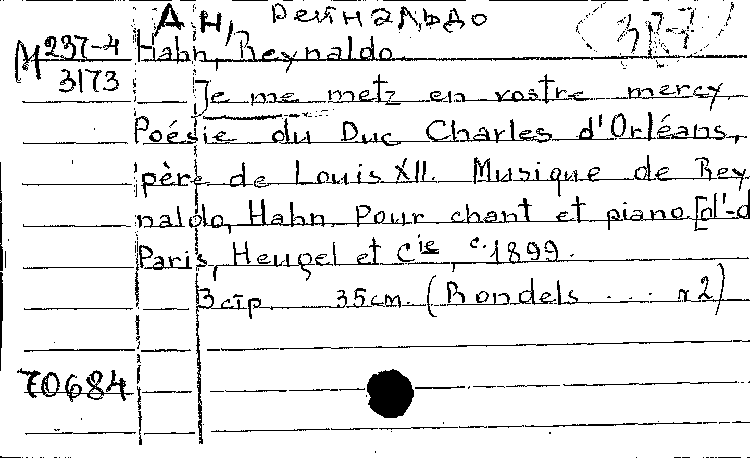 АН, Рейнальдо
M 237-4
3173
317-7
Hahn, Reynaldo.
Je me metz en vostre mercy.
Poésie du Duc Charles d'Orléans,
père de Louis XII. Musique de Rey
naldo, Hahn. Pour chant et piano. [d'-d
Paris, Heugel et Cie, c. 1899.
3 стр. 35cm. (Rondels ... n 2)
70684